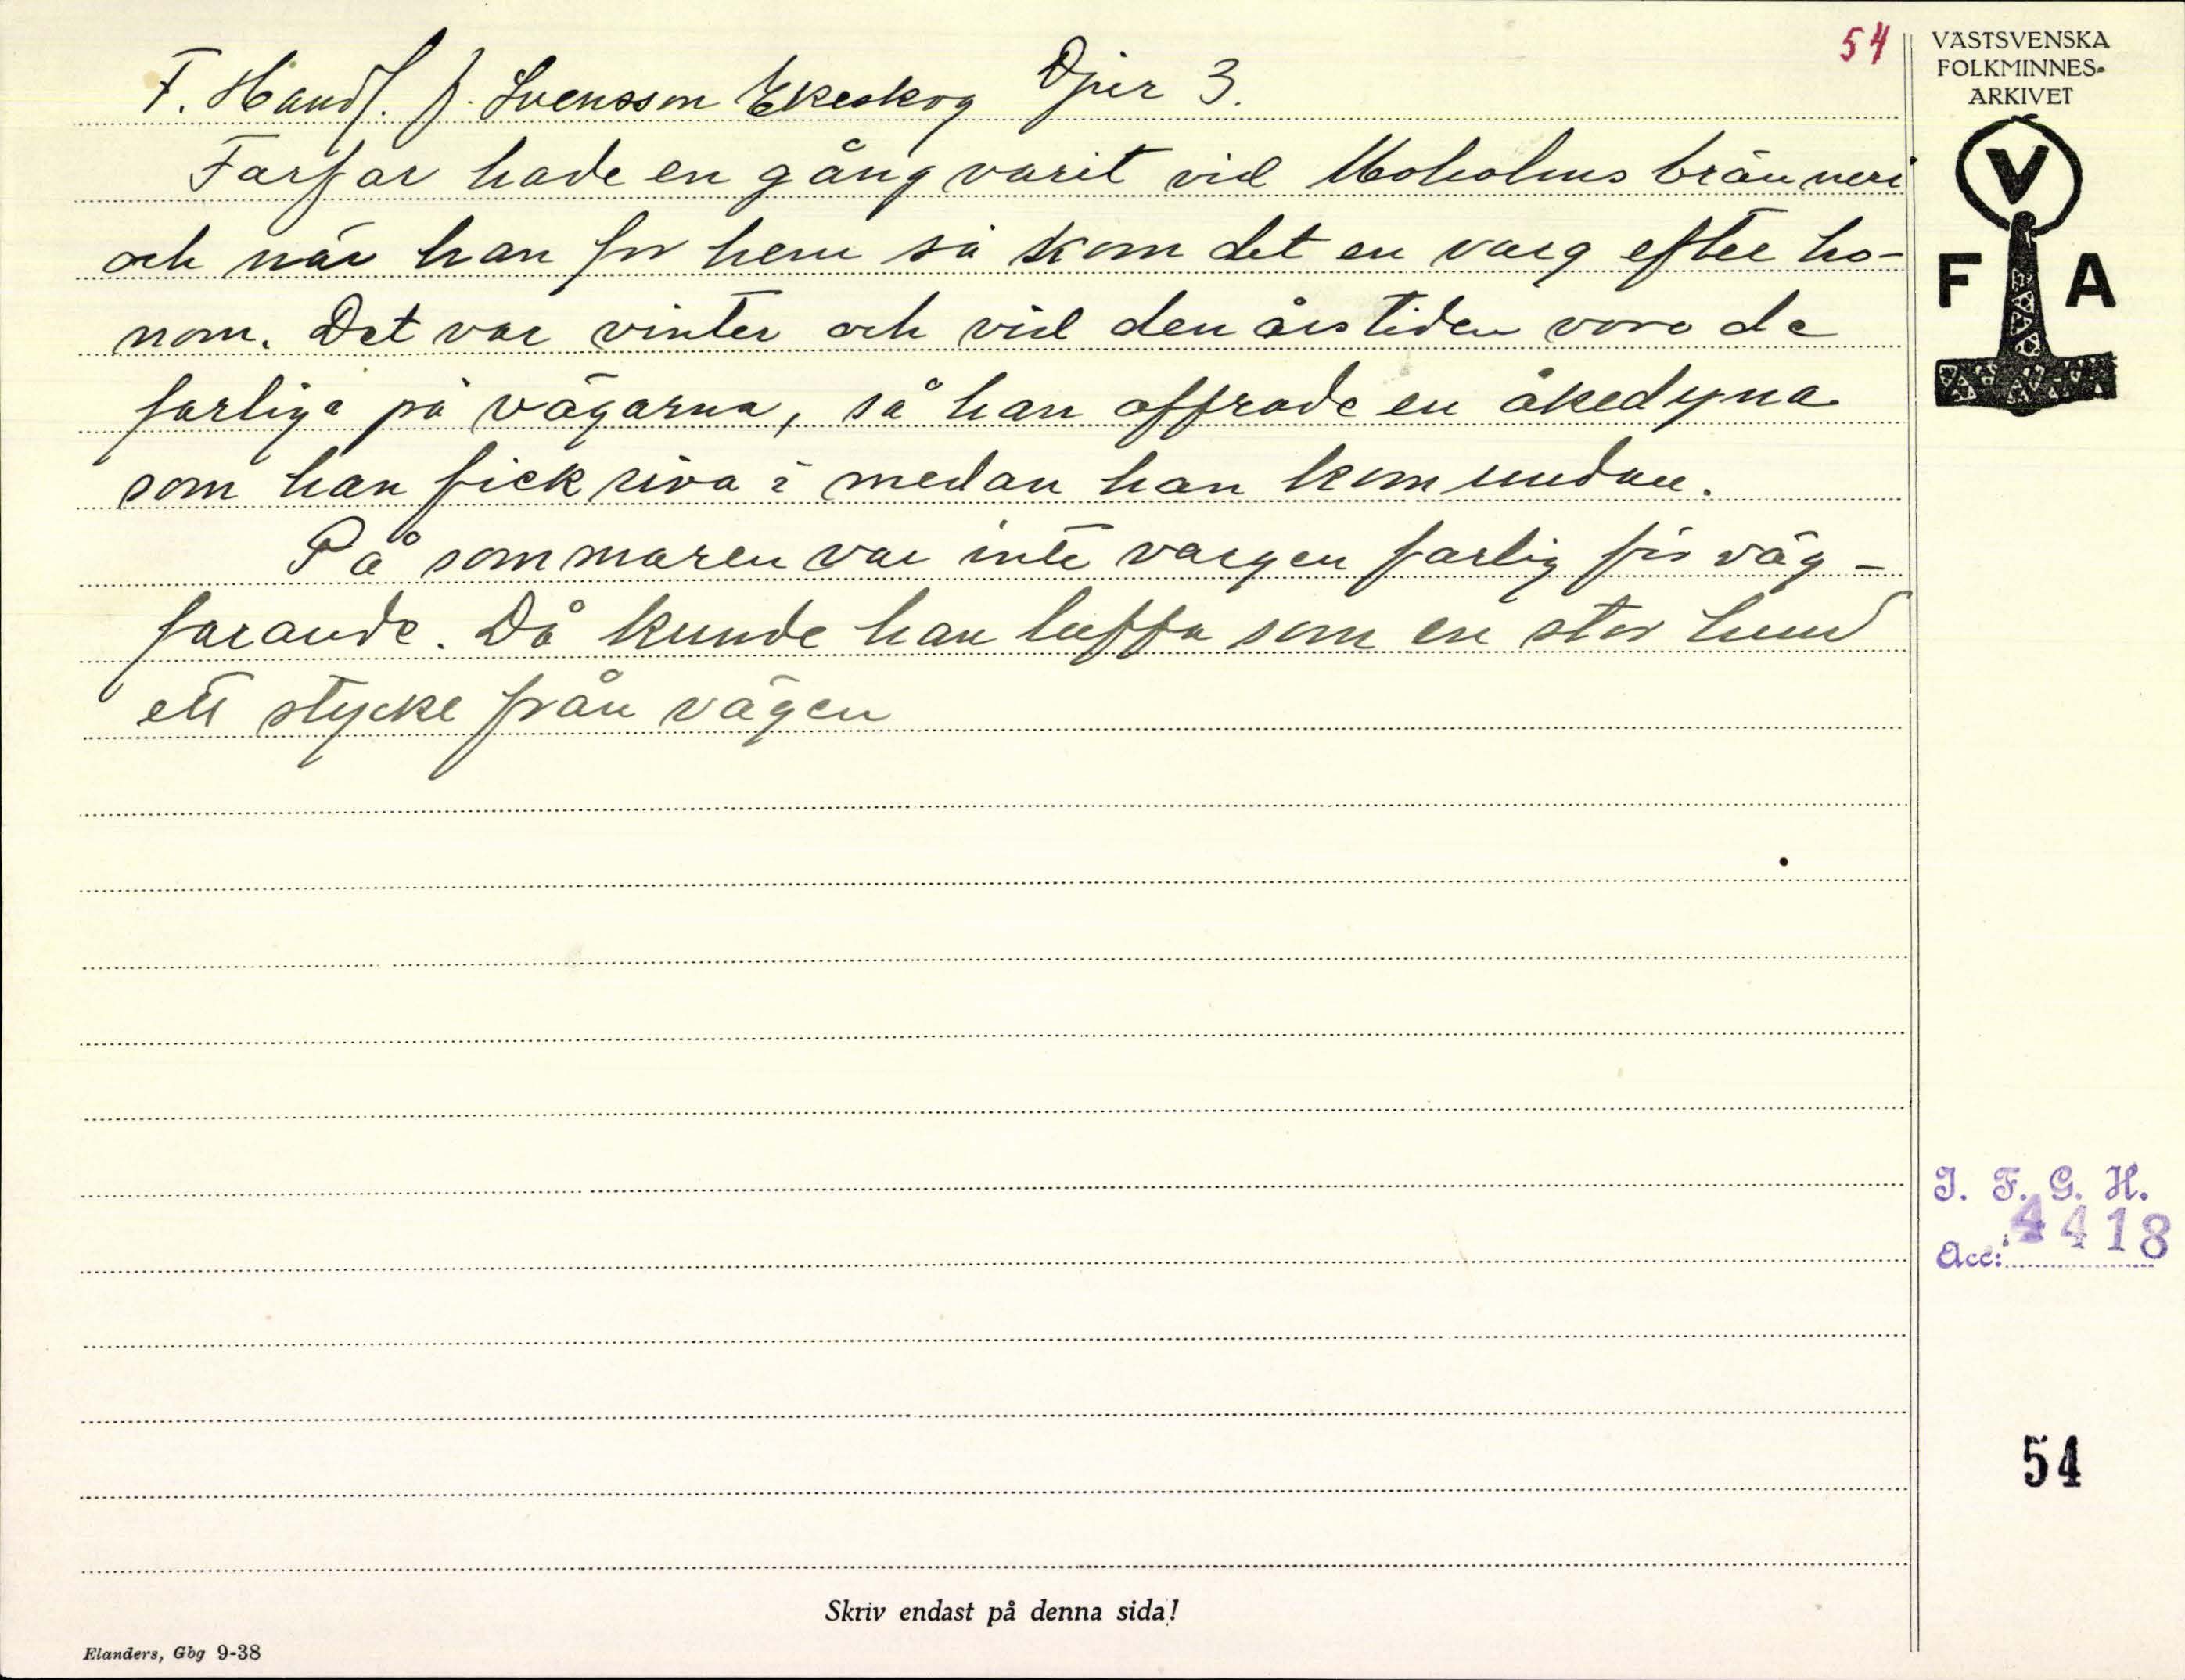 54
F. Handl. J. Svensson Ekeskog Djur 3.
Farfar hade en gång varit vid Moholms bränneri
och när han for hem så kom det en varg efter ho-
nom. Det var vinter och vid den årstiden voro de
farliga på vägarna, så han offrade en åkedyna
som han fick riva i medan han kom undan.
På sommaren var inte vargen farlig för väg-
farande. Då kunde han luffa som en stor hund
ett stycke från vägen
Skriv endast på denna sida!
Elanders, Gbg 9-38
VÄSTSVENSKA
FOLKMINNES-
ARKIVET
V
F A
I. F. G. H.
Acc: 4418
54